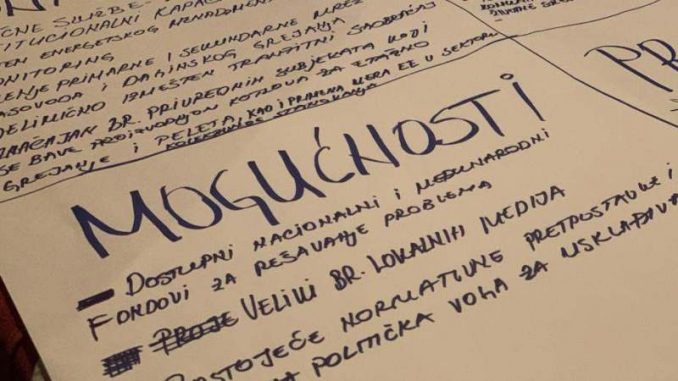 ČNE SLUŽBE
TITUCIONALNI KAPAC
TEN ENERGETSKOG MENADŽMEN
ONITORING
PRIMARNE I SEKUNDARNE MREŽ
ASOVODA I DALJINSKOG GREJANJA
DELIMIČNO IZMEŠTEN TRANZITNI SAOBRAĆAJ
ZNAČAJAN BR. PRIVREDNIH SUBJEKATA KOJI
SE BAVE PROIZVODNJOM KOTLOVA ZA ETAŽNO
GREJANJE I PELETA, KAO I PRIMENA MERA EE U SEKTORU
KOLEKTIVNOG STANOVANJA
PR
MOGUĆNOSTI
- DOSTUPNI NACIONALNI I MEĐUNARODNI
FONDOVI ZA REŠAVANJE PROBLEMA
PROJE VELIKI BR. LOKALNIH MEDIJA
POSTOJEĆE NORMATIVNE PRETPOSTAVKE I
POLITIČKA VOLJA ZA USKLAĐIVA